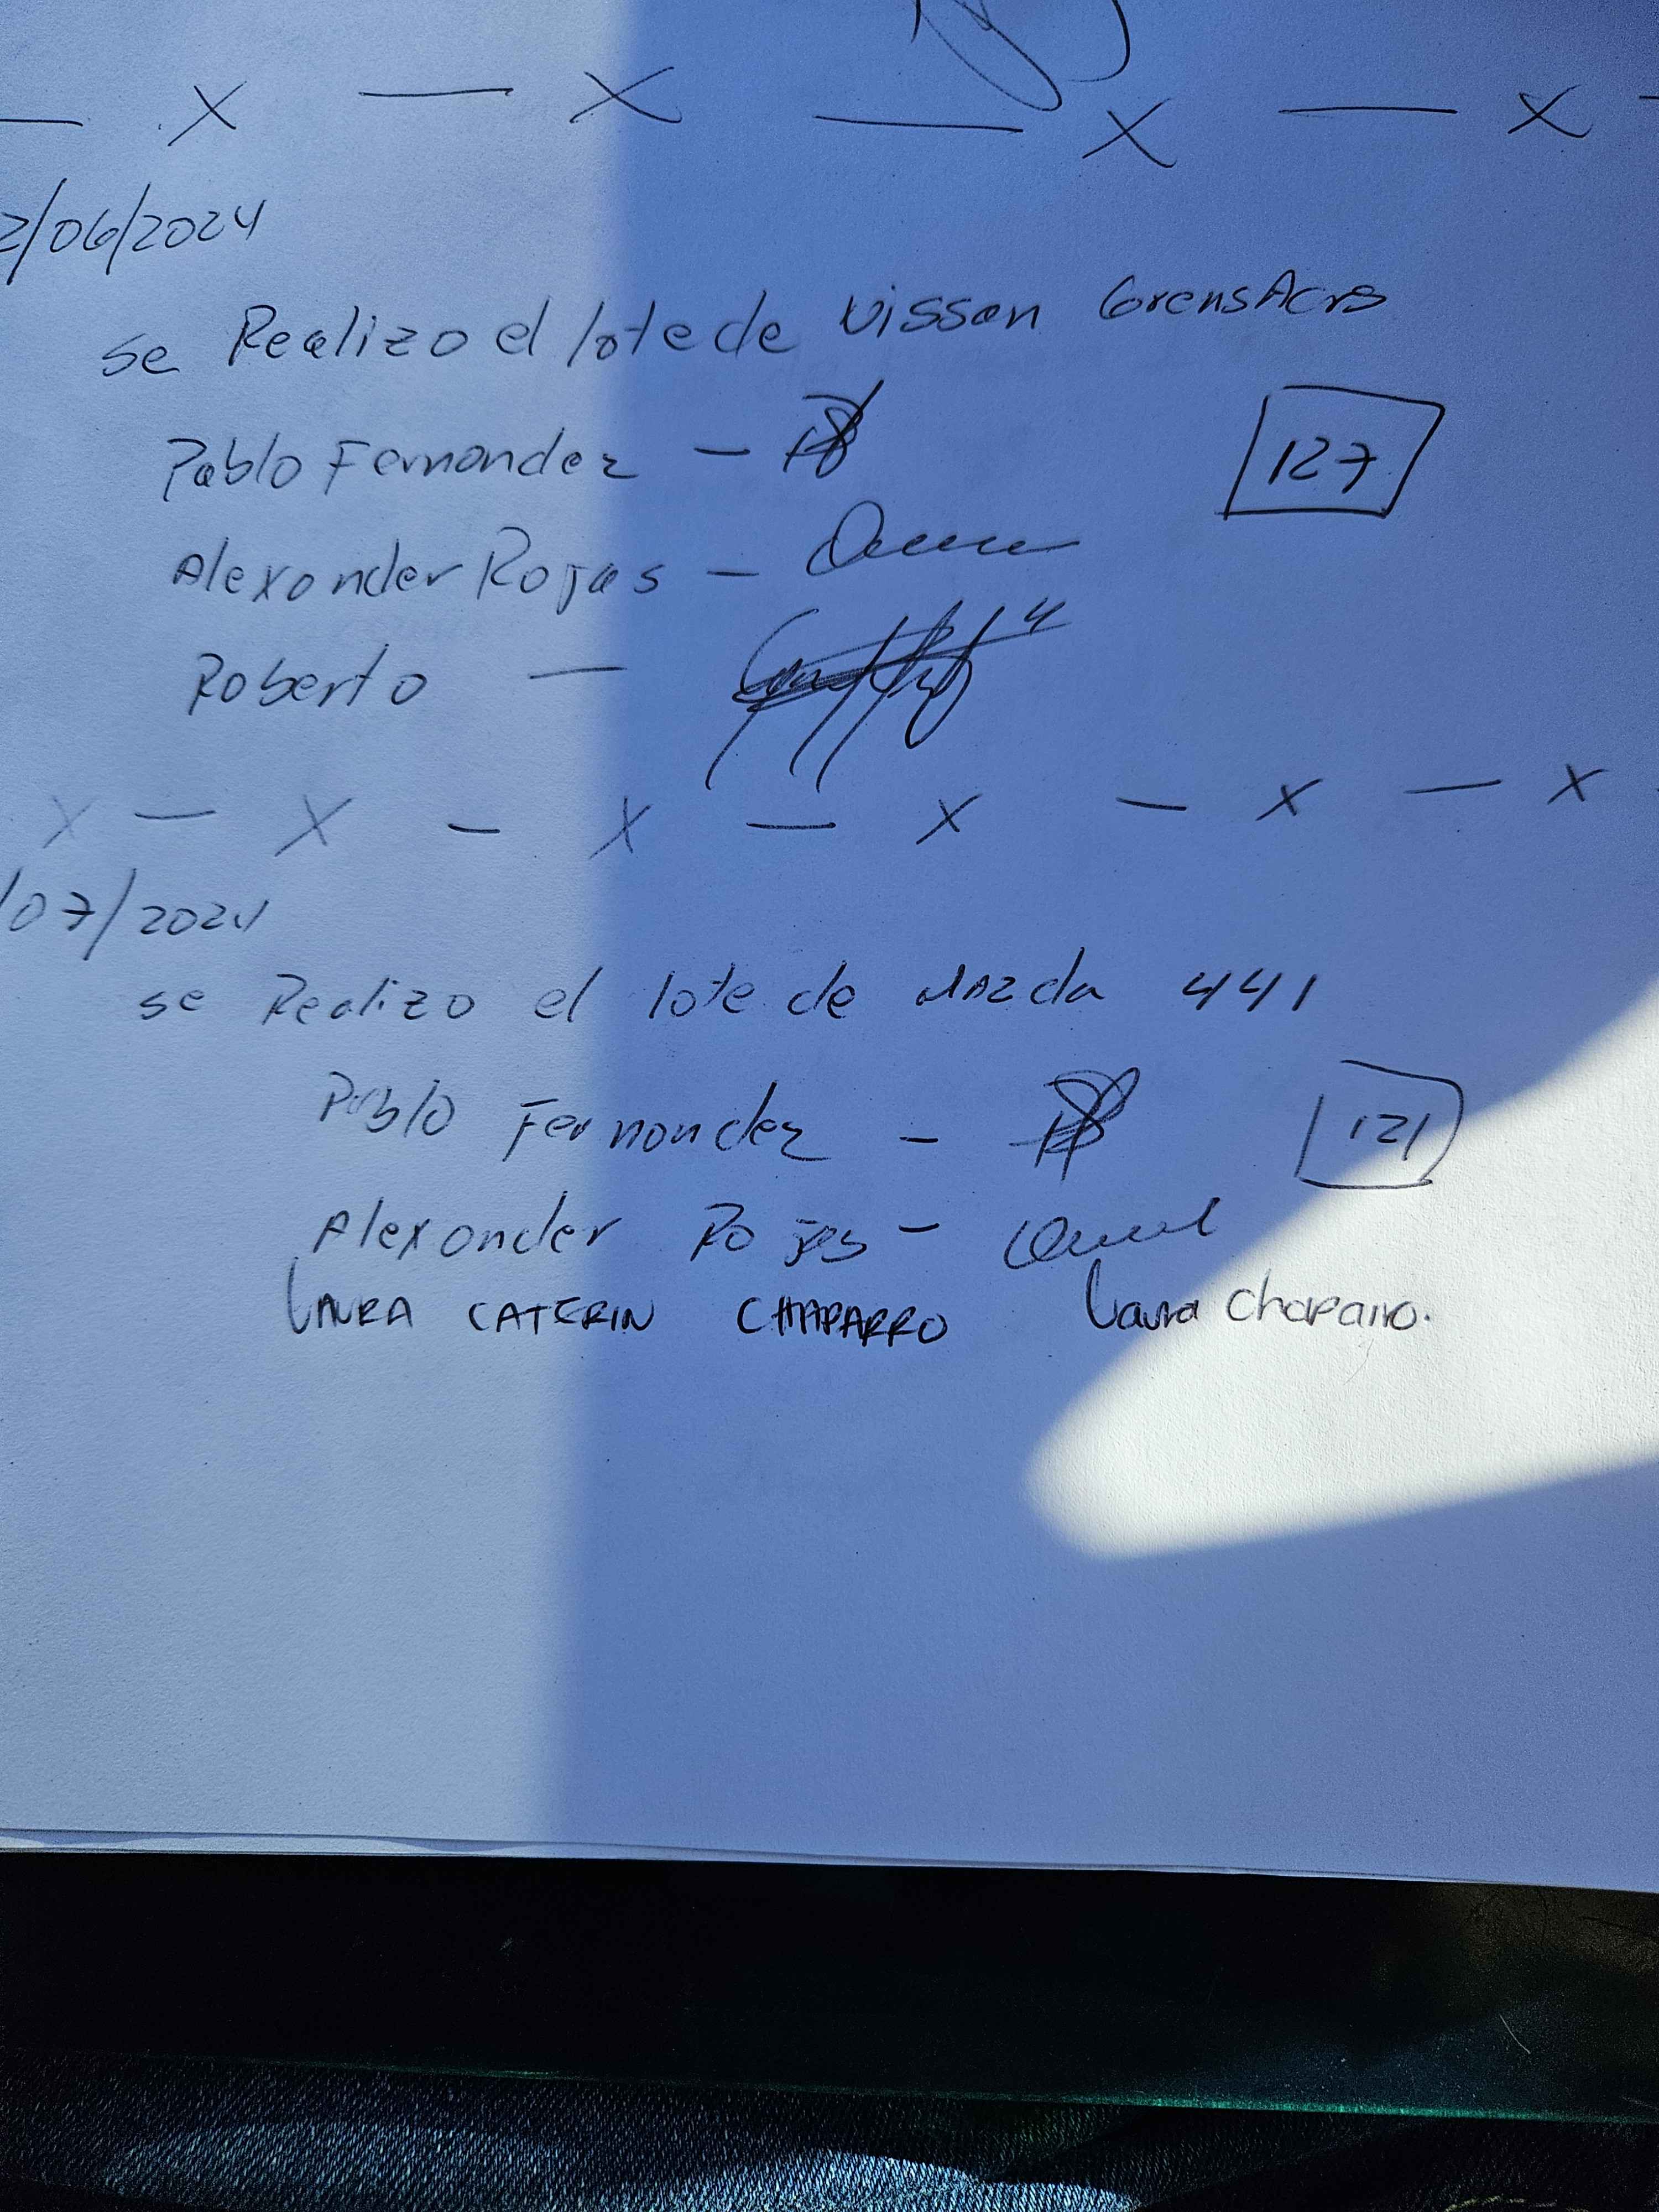 — x — x — x — x
2/06/2024
se Realizo el lote de Nissan GrensAcrs
Pablo Fernandez —
127
Alexander Rojas —
Roberto —
x — x — x — x — x — x
/07/2024
se Realizo el lote de Mazda 441
Pablo Fernandez —
121
Alexander Rojas —
LAURA CATERIN CHAPARRO Laura Chaparro.